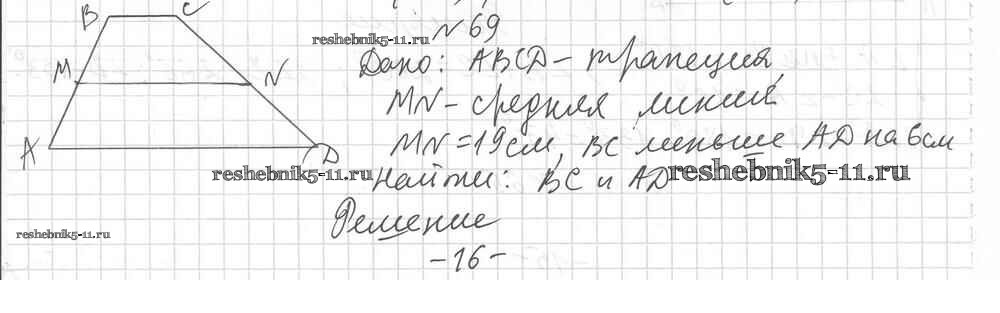 N 69
Дано: ABCD - трапеция,
MN - средняя линия
MN = 19 см, BC меньше AD на 6 см
Найти: BC и AD
Решение
- 16 -
B C
M N
A D
reshebnik5-11.ru
reshebnik5-11.ru
reshebnik5-11.ru
reshebnik5-11.ru